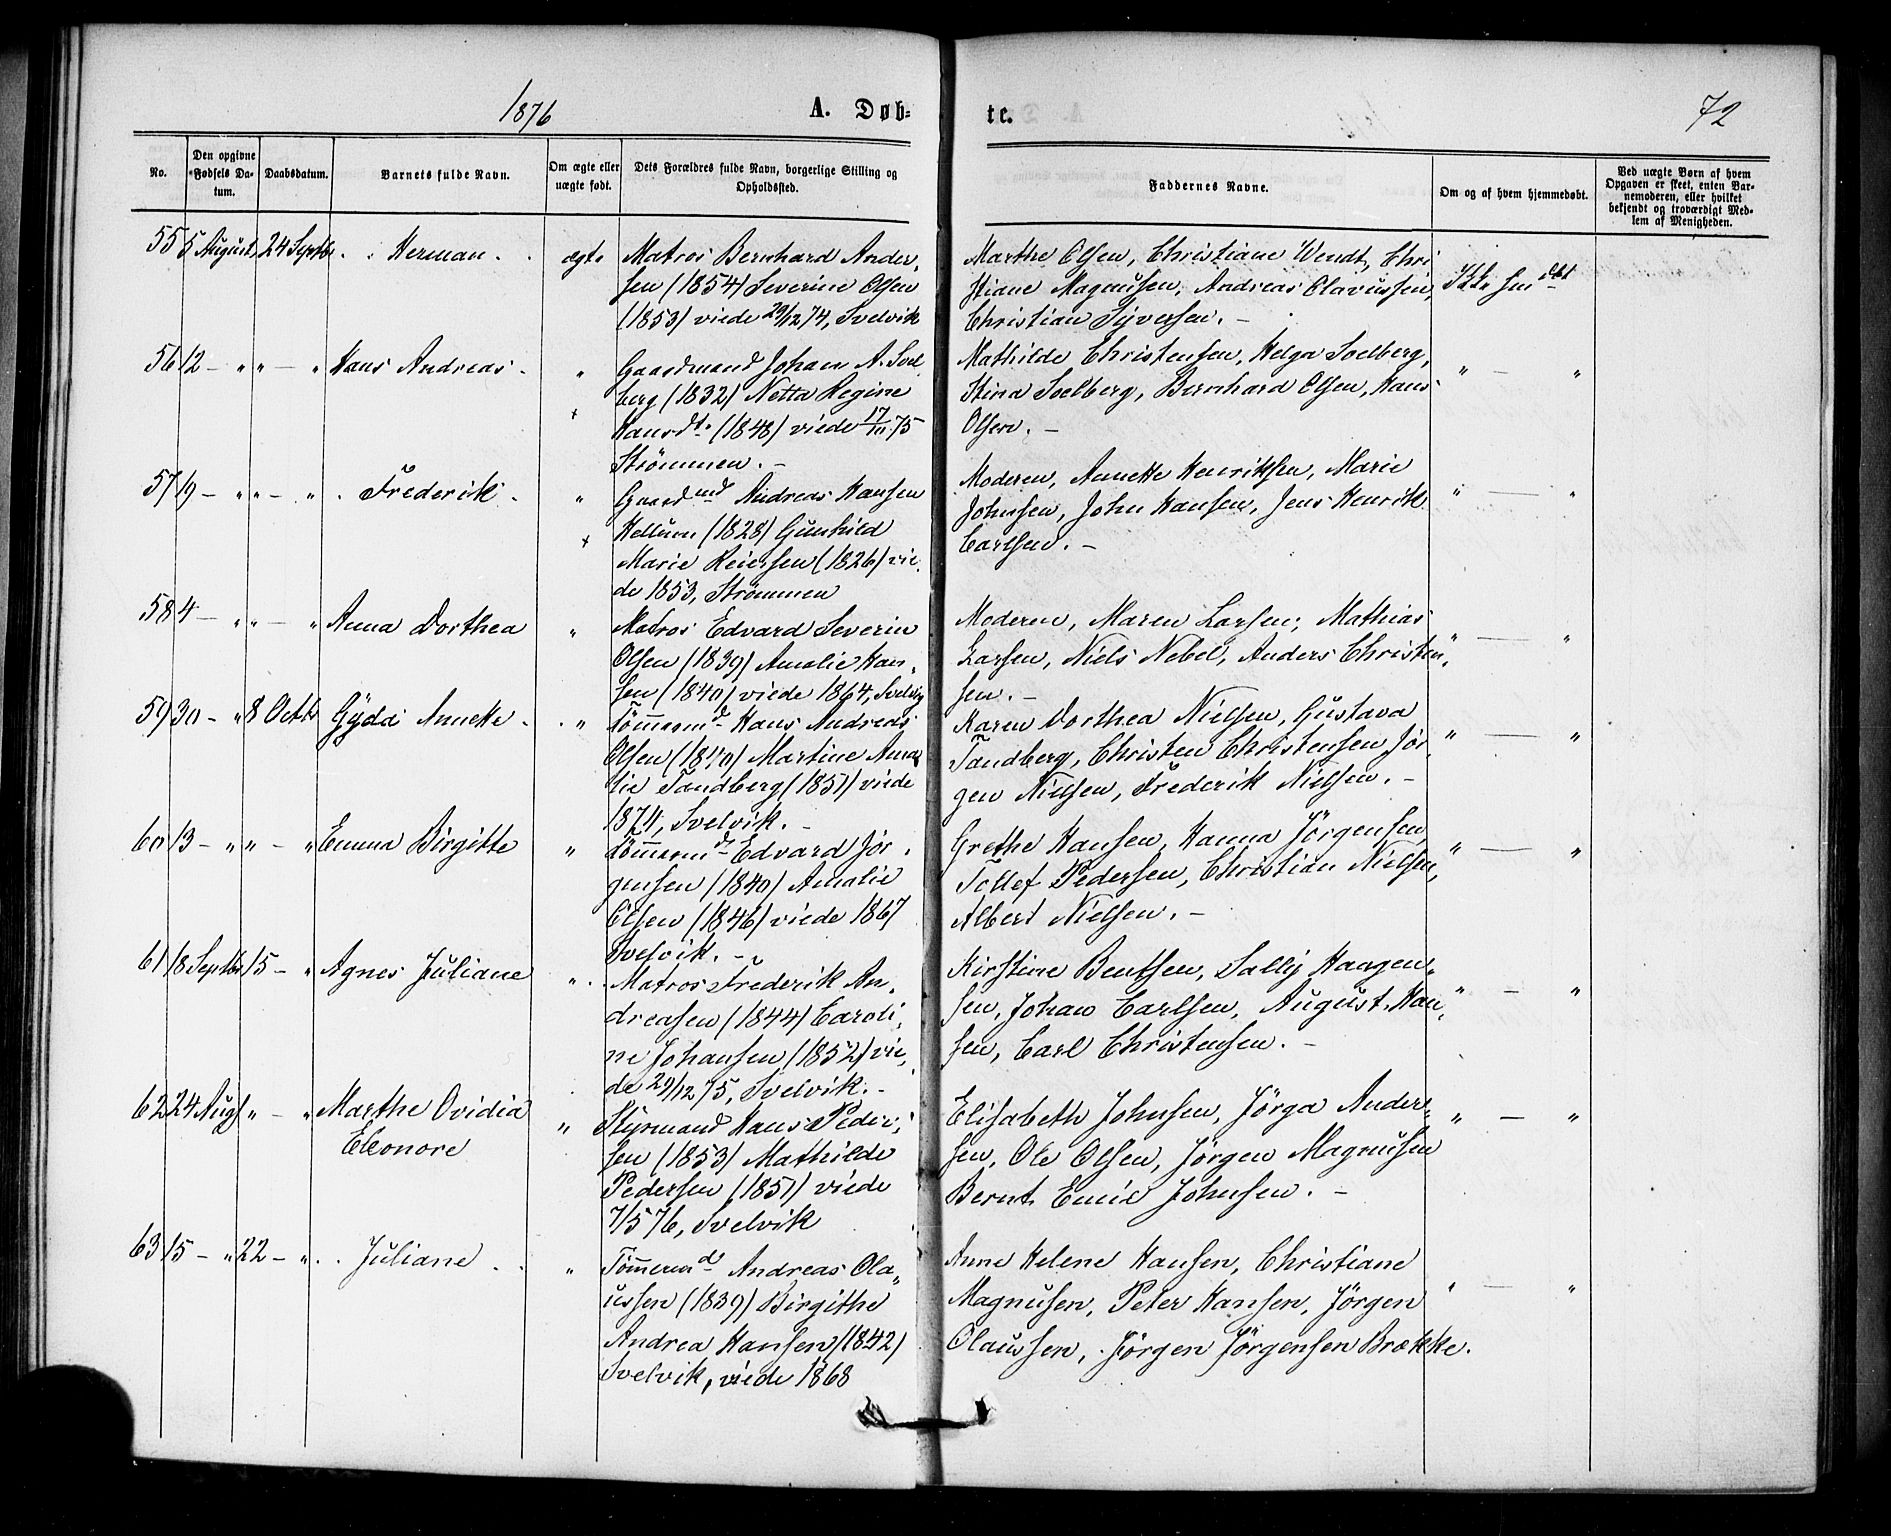 1876
A. Døb-
te.
72
No.
Den opgivne Fødsels Da-tum.
Daabsdatum.
Barnets fulde Navn.
Om ægte eller uægte født.
Dets Forældres fulde Navn, borgerlige Stilling og Opholdssted.
Faddernes Navne.
Om og af hvem hjemmedøbt.
Ved uægte Børn af hvem Opgaven er skeet, enten Bar-nemoderen, eller hvilket bekjendt og troværdigt Med-lem af Menigheden.
55 5 August, 24 Septbr. Herman. ægte
Matros Bernhard Ander,
sen (1854) Severine Olsen
(1853) viede 29/12 74, Svelvik
Marthe Olsen, Christiane Wendt, Chri
stiane Magnusen, Andreas Olavussen,
Christian Syversen. -
56 12 - " " - " Hans Andreas. "
Gaardmand Johan A. Svel
berg (1832) Netta Regine
Hansdt. (1848) viede 17/11 75
Strömmen. -
Mathilde Christensen, Helga Svelberg,
Stina Svelberg, Bernhard Olsen, Hans
Olsen. -
" - "
57 19 - " " - " Frederik. "
Gaardmd Andreas Hansen
Hellum (1828) Gunhild
Marie Reiersen (1826) vie,
de 1853, Strömmen
Moderen, Annette Henriksen, Marie
Johnsen, John Hansen, Jens Henrik
Carlsen. -
" - "
58 4 - " " - " Anna Dorthea "
Matros Edvard Severin
Olsen (1839) Amalie Han,
sen (1840) viede 1864, Svelvig
Moderen, Maren Larsen, Mathias
Larsen, Niels Nebel, Anders Christen,
sen. -
" - "
59 30 - " 8 Octbr Gyda Annette. "
Tömmermd Hans Andreas
Olsen (1840) Martine Ama
lie Tandberg (1851) viede
1874, Svelvik. -
Karen Dorthea Nielsen, Gustava
Tandberg, Christen Christensen Jör,
gen Nielsen, Frederik Nielsen. -
" - "
60 13 - " " - " Emma Birgitte "
Tömmermd Edvard Jör,
gensen (1840) Amalie
Olsen (1846) viede 1867
Svelvik. -
Grethe Hansen, Hanna Jörgensen,
Tollef Pedersen, Christian Nielsen,
Albert Nielsen. -
" - "
61 18 Septbr 15 - " Agnes Juliane "
Matros Frederik An,
dreasen (1844) Caroli,
ne Johansen (1852) vie,
de 29/12 75, Svelvik. -
Kirstine Bentsen, Sally Haagen,
sen, Johan Carlsen, August Han,
sen, Carl Christensen. -
" - "
62 24 Augt " - " Marthe Ovidia "
Eleonore
Styrmand Hans Peder,
sen (1853) Mathilde
Pedersen (1851) viede
7/5 76, Svelvik
Elisabeth Johnsen, Jörga Ander,
sen, Ole Olsen, Jörgen Magnusen
Bernt Emil Johnsen. -
" - "
63 15 - " 22 - " Juliane. "
Tömmermd Andreas Ola,
ussen (1839) Birgithe
Andrea Hansen (1842)
Svelvik, viede 1868
Anne Helene Hansen, Christiane
Magnusen, Peter Hansen, Jörgen
Olaussen, Jörgen Jörgensen Brække.
" - "